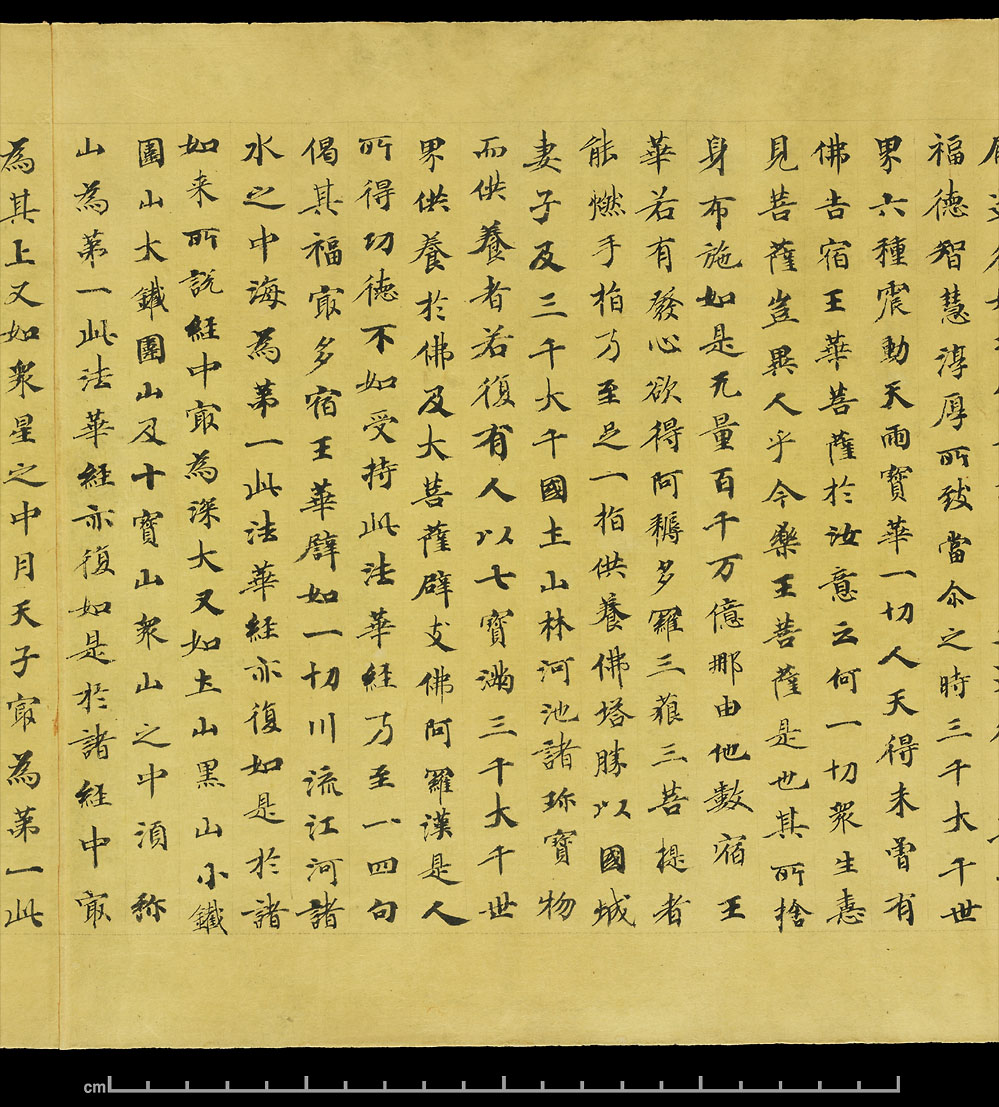 福德智慧淳厚所致當尒之時三千大千世
界六種震動天雨寶華一切人天得未曾有
佛告宿王華菩薩於汝意云何一切衆生憙
見菩薩豈異人乎今藥王菩薩是也其所捨
身布施如是无量百千万億那由他數宿王
華若有發心欲得阿耨多羅三藐三菩提者
能燃手指乃至足一指供養佛塔勝以國城
妻子及三千大千國土山林河池諸珎寶物
而供養者若復有人以七寶滿三千大千世
界供養於佛及大菩薩辟支佛阿羅漢是人
所得功德不如受持此法華經乃至一四句
偈其福㝡多宿王華譬如一切川流江河諸
水之中海為第一此法華經亦復如是於諸
如来所說經中㝡為深大又如土山黑山小鐵
圍山大鐵圍山及十寶山衆山之中湏弥
山為第一此法華經亦復如是於諸經中㝡
為其上又如衆星之中月天子㝡為第一此